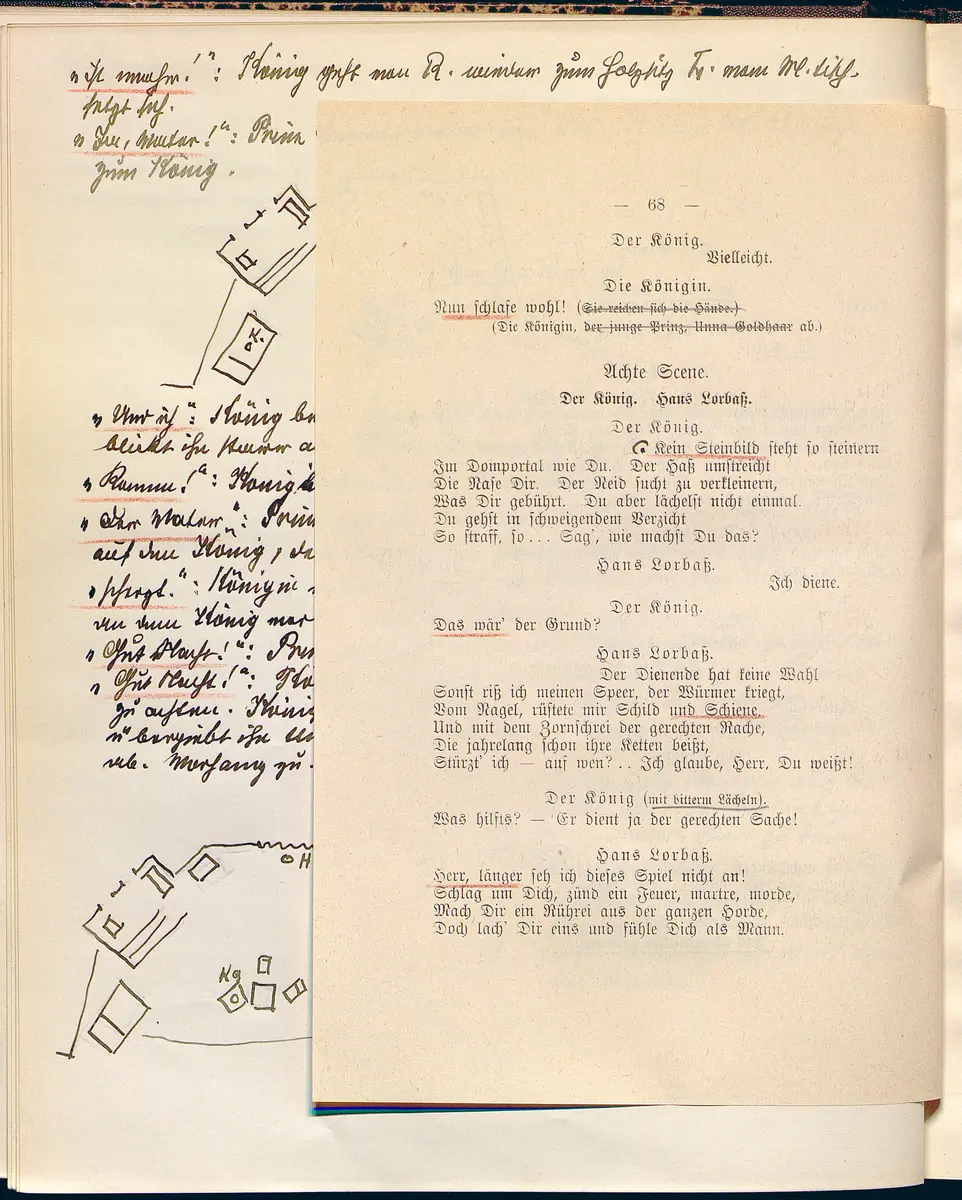 „ist wahr!“: König geht von R. wieder zum Holzsitz L. vom M. tisch.
setzt sich.
„Ja, Vater!“: Prinz
zum König.
K.
„Und ich“: König
blickt ihn starr
„Komm!“: König
„der Vater“: Prinz
auf den König,
Königin
an dem König
„Gut Nacht!“:
„Gut Nacht!“:
zu achten. König
u übergiebt ihr
ab. Vorhang zu.
H
Kg
— 68 —
Der König.
Vielleicht.
Die Königin.
Nun schlafe wohl! (Sie reichen sich die Hände.)
(Die Königin, der junge Prinz, Anna Goldhaar ab.)
Achte Scene.
Der König. Hans Lorbaß.
Der König.
Kein Steinbild steht so steinern
Im Domportal wie Du. Der Haß umstreicht
Die Nase Dir. Der Neid sucht zu verkleinern,
Was Dir gebührt. Du aber lächelst nicht einmal.
Du gehst in schweigendem Verzicht
So straff, so... Sag', wie machst Du das?
Hans Lorbaß.
Ich diene.
Der König.
Das wär' der Grund?
Hans Lorbaß.
Der Dienende hat keine Wahl
Sonst riß ich meinen Speer, der Würmer kriegt,
Vom Nagel, rüstete mir Schild und Schiene,
Und mit dem Zornschrei der gerechten Rache,
Die jahrelang schon ihre Ketten beißt,
Stürzt' ich — auf wen?.. Ich glaube, Herr, Du weißt!
Der König (mit bitterm Lächeln).
Was hilfts? — Er dient ja der gerechten Sache!
Hans Lorbaß.
Herr, länger seh ich dieses Spiel nicht an!
Schlag um Dich, zünd ein Feuer, martre, morde,
Mach Dir ein Rührei aus der ganzen Horde,
Doch lach' Dir eins und fühle Dich als Mann.